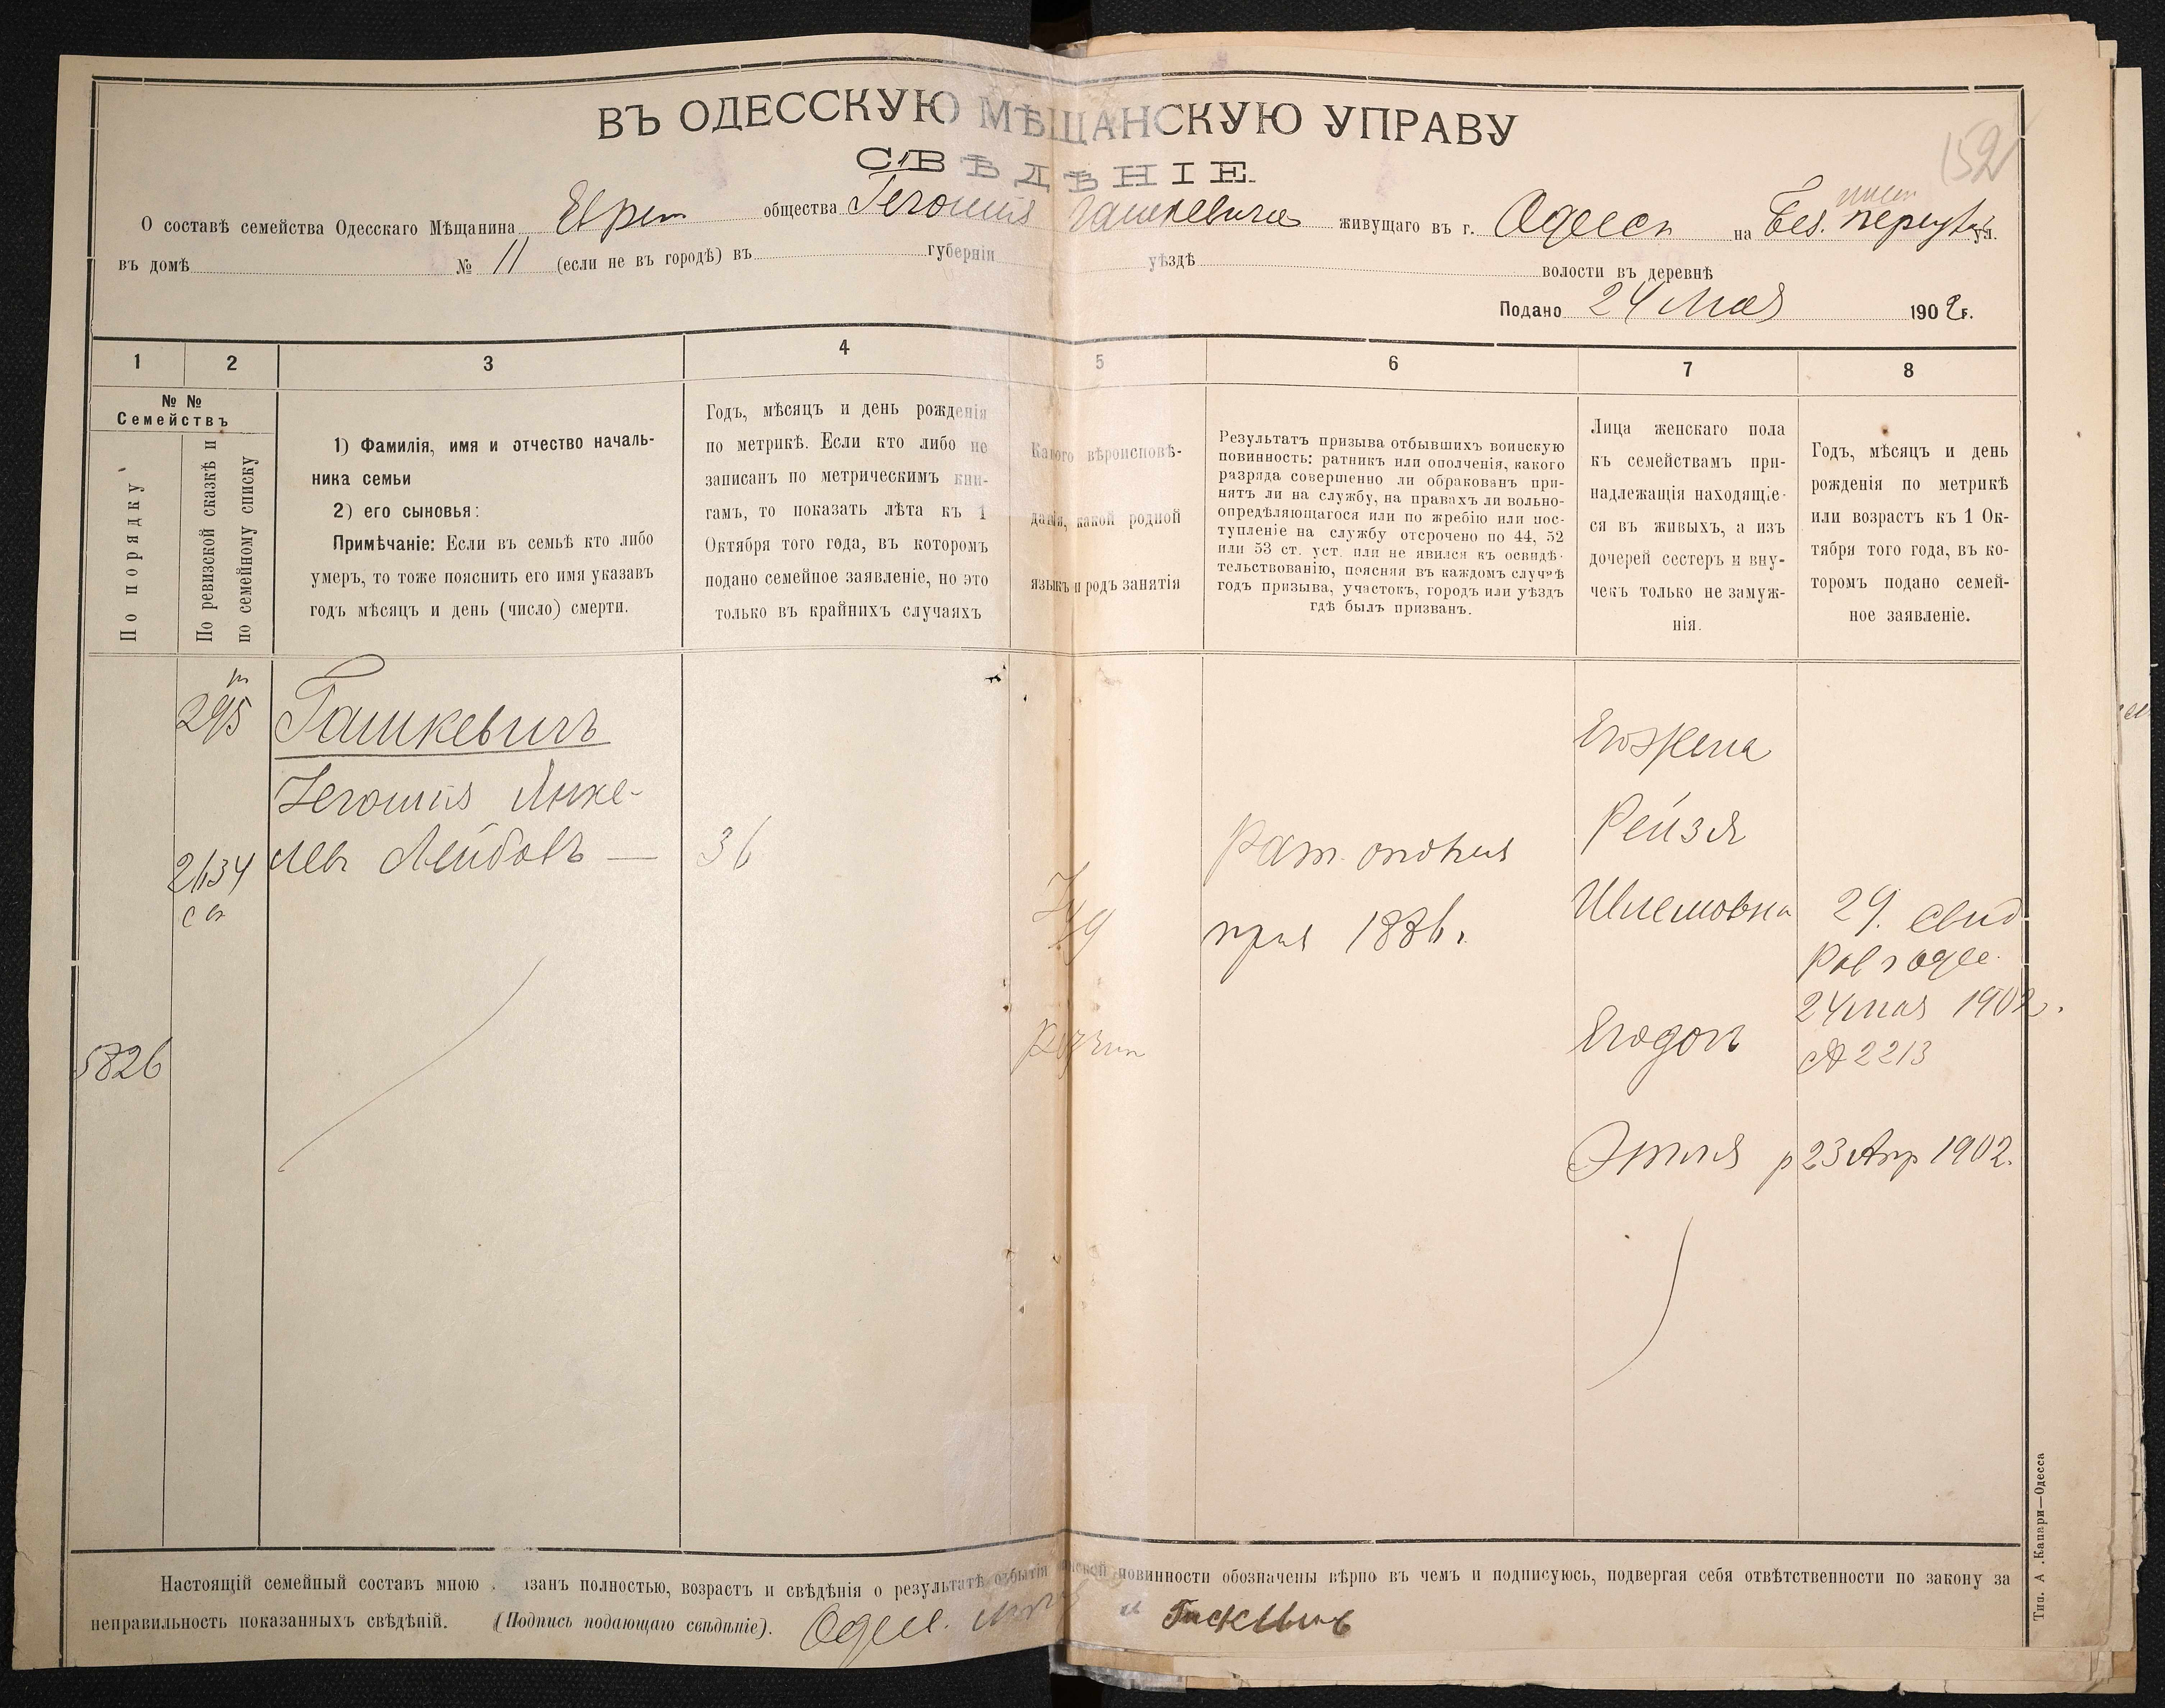 ВЪ ОДЕССКУЮ МѢЩАНСКУЮ УПРАВУ
СВѢДѢНІЕ.
152
О составѣ семейства Одесскаго Мѣщанина Еврей общества Іегошія Гашкевича живущаго въ г. Одессѣ на ул.
въ домѣ № 11 (если не въ городѣ) въ губерніи уѣздѣ волости въ деревнѣ
Подано 24 Мая 1902 г.
1 2 3 4 5 6 7 8
№ №
Семействъ
По порядку
По ревизской сказкѣ и
по семейному списку
1) Фамилія, имя и отчество началь-
ника семьи
2) его сыновья:
Примѣчаніе: Если въ семьѣ кто либо
умеръ, то тоже пояснить его имя указавъ
годъ мѣсяцъ и день (число) смерти.
Годъ, мѣсяцъ и день рожденія
по метрикѣ. Если кто либо не
записанъ по метрическимъ кни-
гамъ, то показать лѣта къ 1
Октября того года, въ которомъ
подано семейное заявленіе, но это
только въ крайнихъ случаяхъ
Какого вѣроисповѣ-
данія, какой родной
языкъ и родъ занятія
Результатъ призыва отбывшихъ воинскую
повинность: ратникъ или ополченія, какого
разряда совершенно ли обракованъ при-
нятъ ли на службу, на правахъ ли вольно-
опредѣляющагося или по жребію или пос-
тупленіе на службу отсрочено по 44, 52
или 53 ст. уст. или не явился къ освидѣ-
тельствованію, поясняя въ каждомъ случаѣ
годъ призыва, участокъ, городъ или уѣздъ
гдѣ былъ призванъ.
Лица женскаго пола
къ семействамъ при-
надлежащія находящіе-
ся въ живыхъ, а изъ
дочерей сестеръ и вну-
чекъ только не замуж-
нія.
Годъ, мѣсяцъ и день
рожденія по метрикѣ
или возрастъ къ 1 Ок-
тября того года, въ ко-
торомъ подано семей-
ное заявленіе.
295
Гашкевичъ
Іегошія Янке-
левъ Лейбовъ —
36
2634
св
5826
Іуд
Рат. ополч
приз 1886 г.
Его жена
Рейзя
Шлемовна
29. свид
Рав г Одес.
24 мая 1902.
№ 2213
Его дочь
Этля р 23 Апр 1902.
Настоящій семейный составъ мною занъ полностью, возрастъ и свѣдѣнія о результатѣ отбытія повинности обозначены вѣрно въ чемъ и подписуюсь, подвергая себя отвѣтственности по закону за
неправильность показанныхъ свѣдѣній. (Подпись подающаго свѣдѣніе). Одесс.
Тип. А. Капари—Одесса